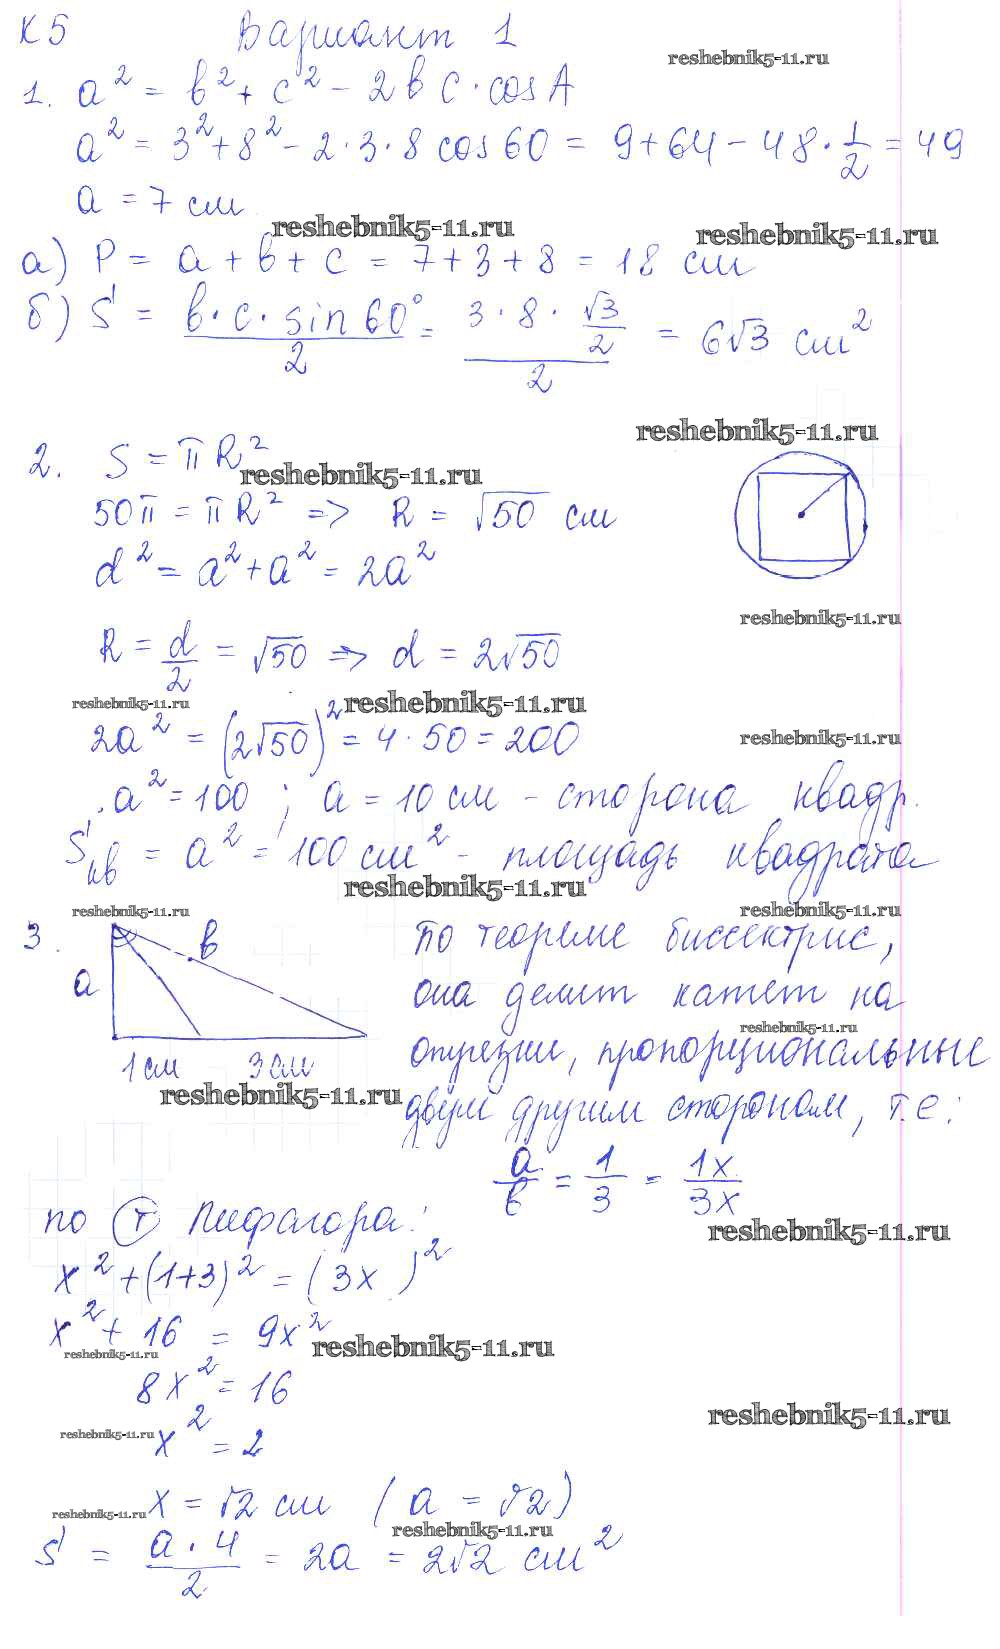 К 5 Вариант 1
reshebnik5-11.ru
1. a² = b² + c² - 2bc·cosA
a² = 3² + 8² - 2·3·8 cos60 = 9+64-48·1/2 = 49
a = 7 см
reshebnik5-11.ru
reshebnik5-11.ru
а) P = a + b + c = 7+3+8 = 18 см
б) S = b·c·sin60°/2 = 3·8·√3/2/2 = 6√3 см²
reshebnik5-11.ru
2. S = πR²
reshebnik5-11.ru
50π = πR² => R = √50 см
d² = a² + a² = 2a²
reshebnik5-11.ru
R = d/2 = √50 => d = 2√50
reshebnik5-11.ru
reshebnik5-11.ru
2a² = (2√50)² = 4·50 = 200
reshebnik5-11.ru
a² = 100 ; a = 10 см - сторона квадр.
Sкв = a² = 100 см² - площадь квадрата
reshebnik5-11.ru
reshebnik5-11.ru
reshebnik5-11.ru
3.
a
b
1 см 3 см
По теореме биссектрис,
она делит катет на
reshebnik5-11.ru
отрезки, пропорциональные
reshebnik5-11.ru
двум другим сторонам, т.е:
a/b = 1/3 = 1x/3x
по т Пифагора:
reshebnik5-11.ru
x² + (1+3)² = (3x)²
x² + 16 = 9x²
reshebnik5-11.ru
reshebnik5-11.ru
8x² = 16
reshebnik5-11.ru
reshebnik5-11.ru
x² = 2
x = √2 см (a = √2)
reshebnik5-11.ru
reshebnik5-11.ru
S = a·4/2 = 2a = 2√2 см²